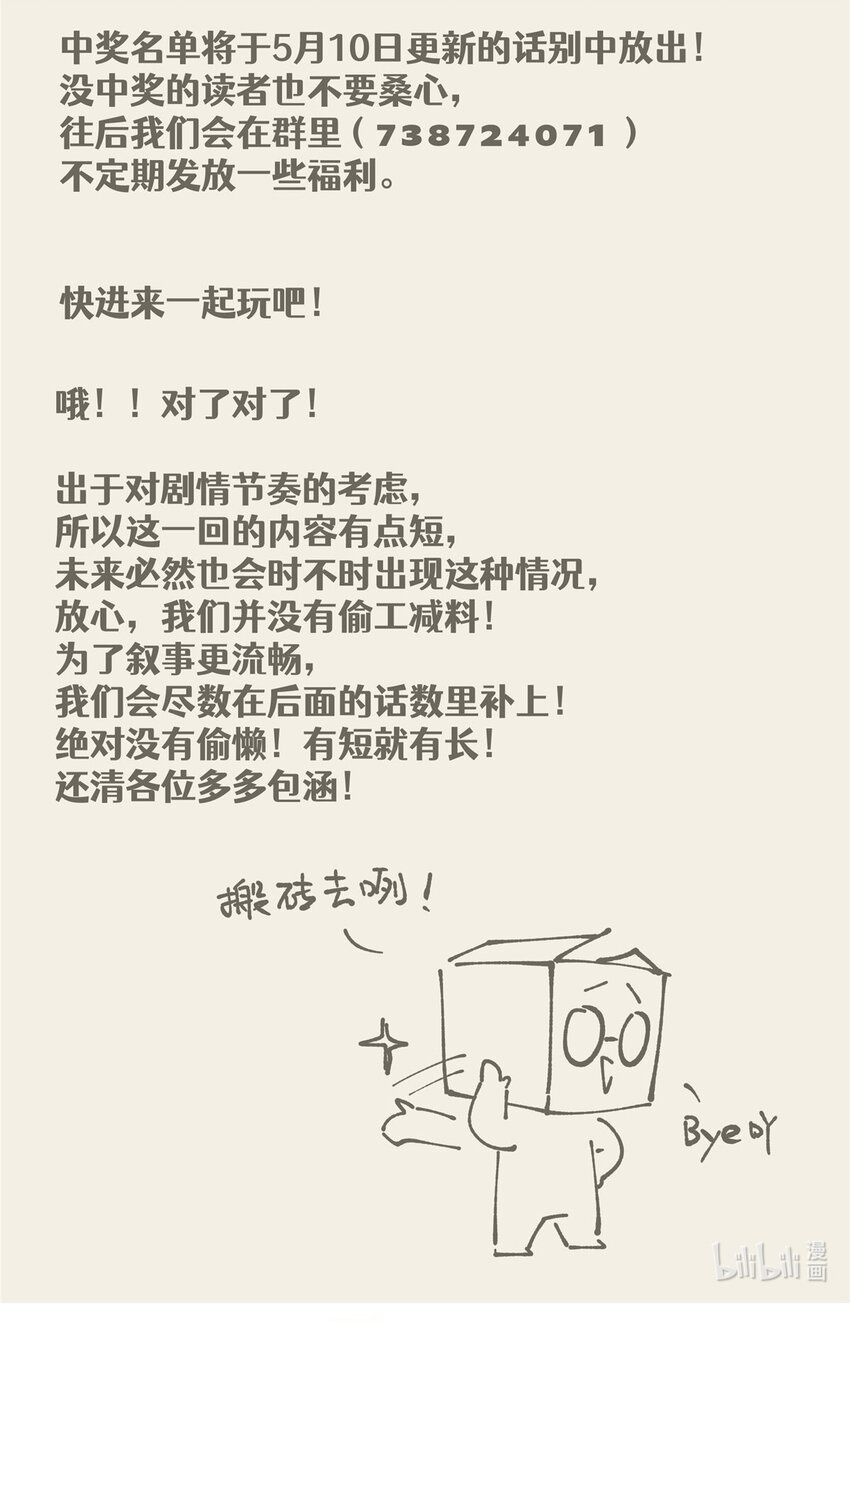 中奖名单将于5月10日更新的话别中放出！
没中奖的读者也不要桑心，
往后我们会在群里（738724071）
不定期发放一些福利。
快进来一起玩吧！
哦！！对了对了！
出于对剧情节奏的考虑，
所以这一回的内容有点短，
未来必然也会时不时出现这种情况，
放心，我们并没有偷工减料！
为了叙事更流畅，
我们会尽数在后面的话数里补上！
绝对没有偷懒！有短就有长！
还清各位多多包涵！
搬砖去咧！
Bye吖
bilibili漫画